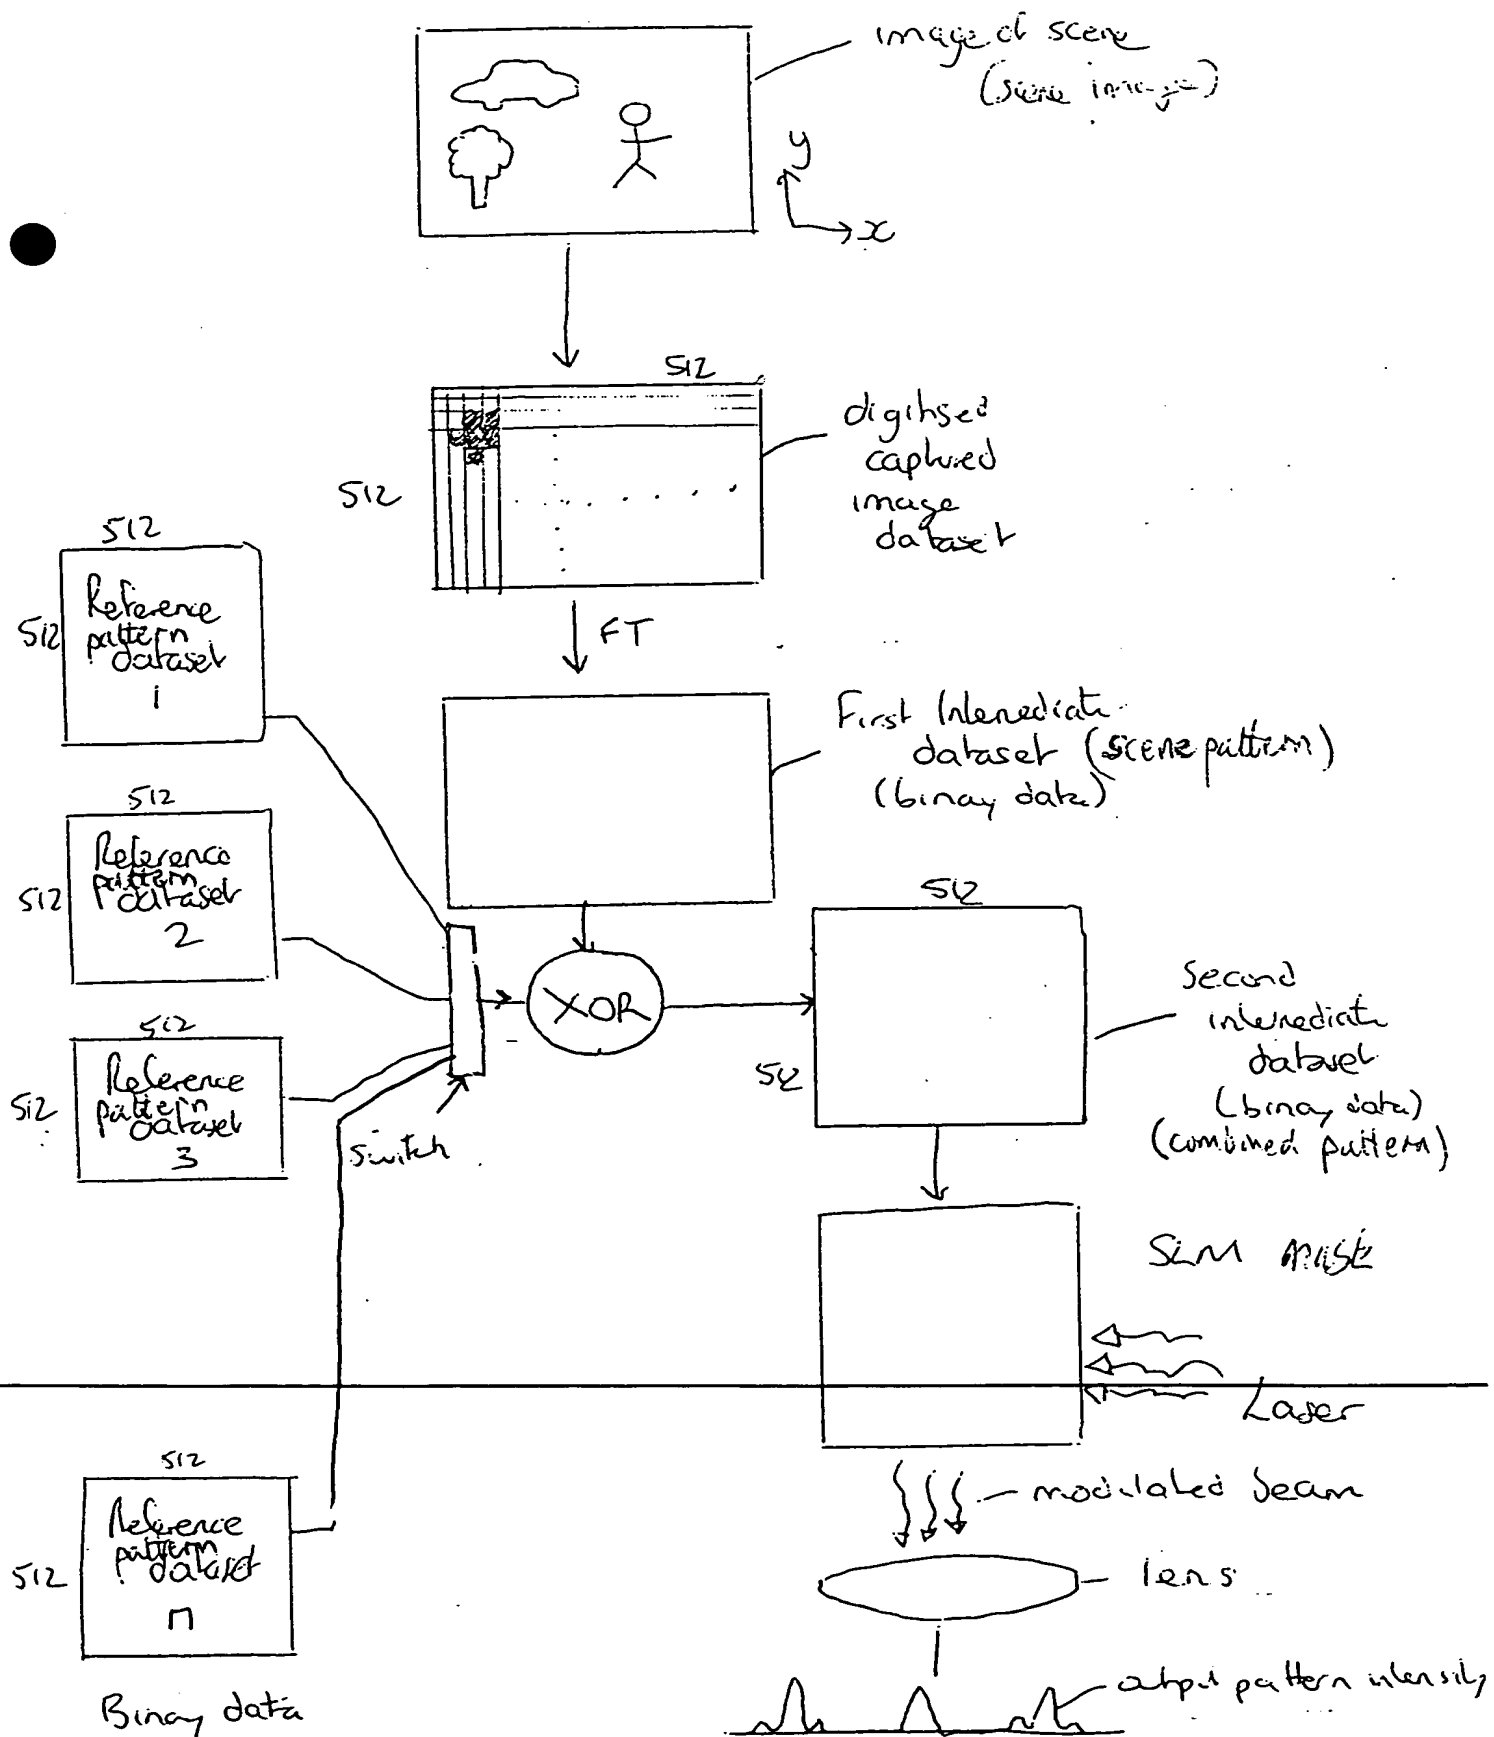 image of scene
(scene image)
y
x
512
512
digitised
captured
image
dataset
FT
512
512
Reference
pattern
dataset
1
First Intermediate
dataset (scene pattern)
(binary data)
512
512
Reference
pattern
dataset
2
512
512
Reference
pattern
dataset
3
switch
XOR
512
512
Second
intermediate
dataset
(binary data)
(combined pattern)
SLM MASK
Laser
modulated beam
lens
output pattern intensity
512
512
Reference
pattern
dataset
n
Binary data